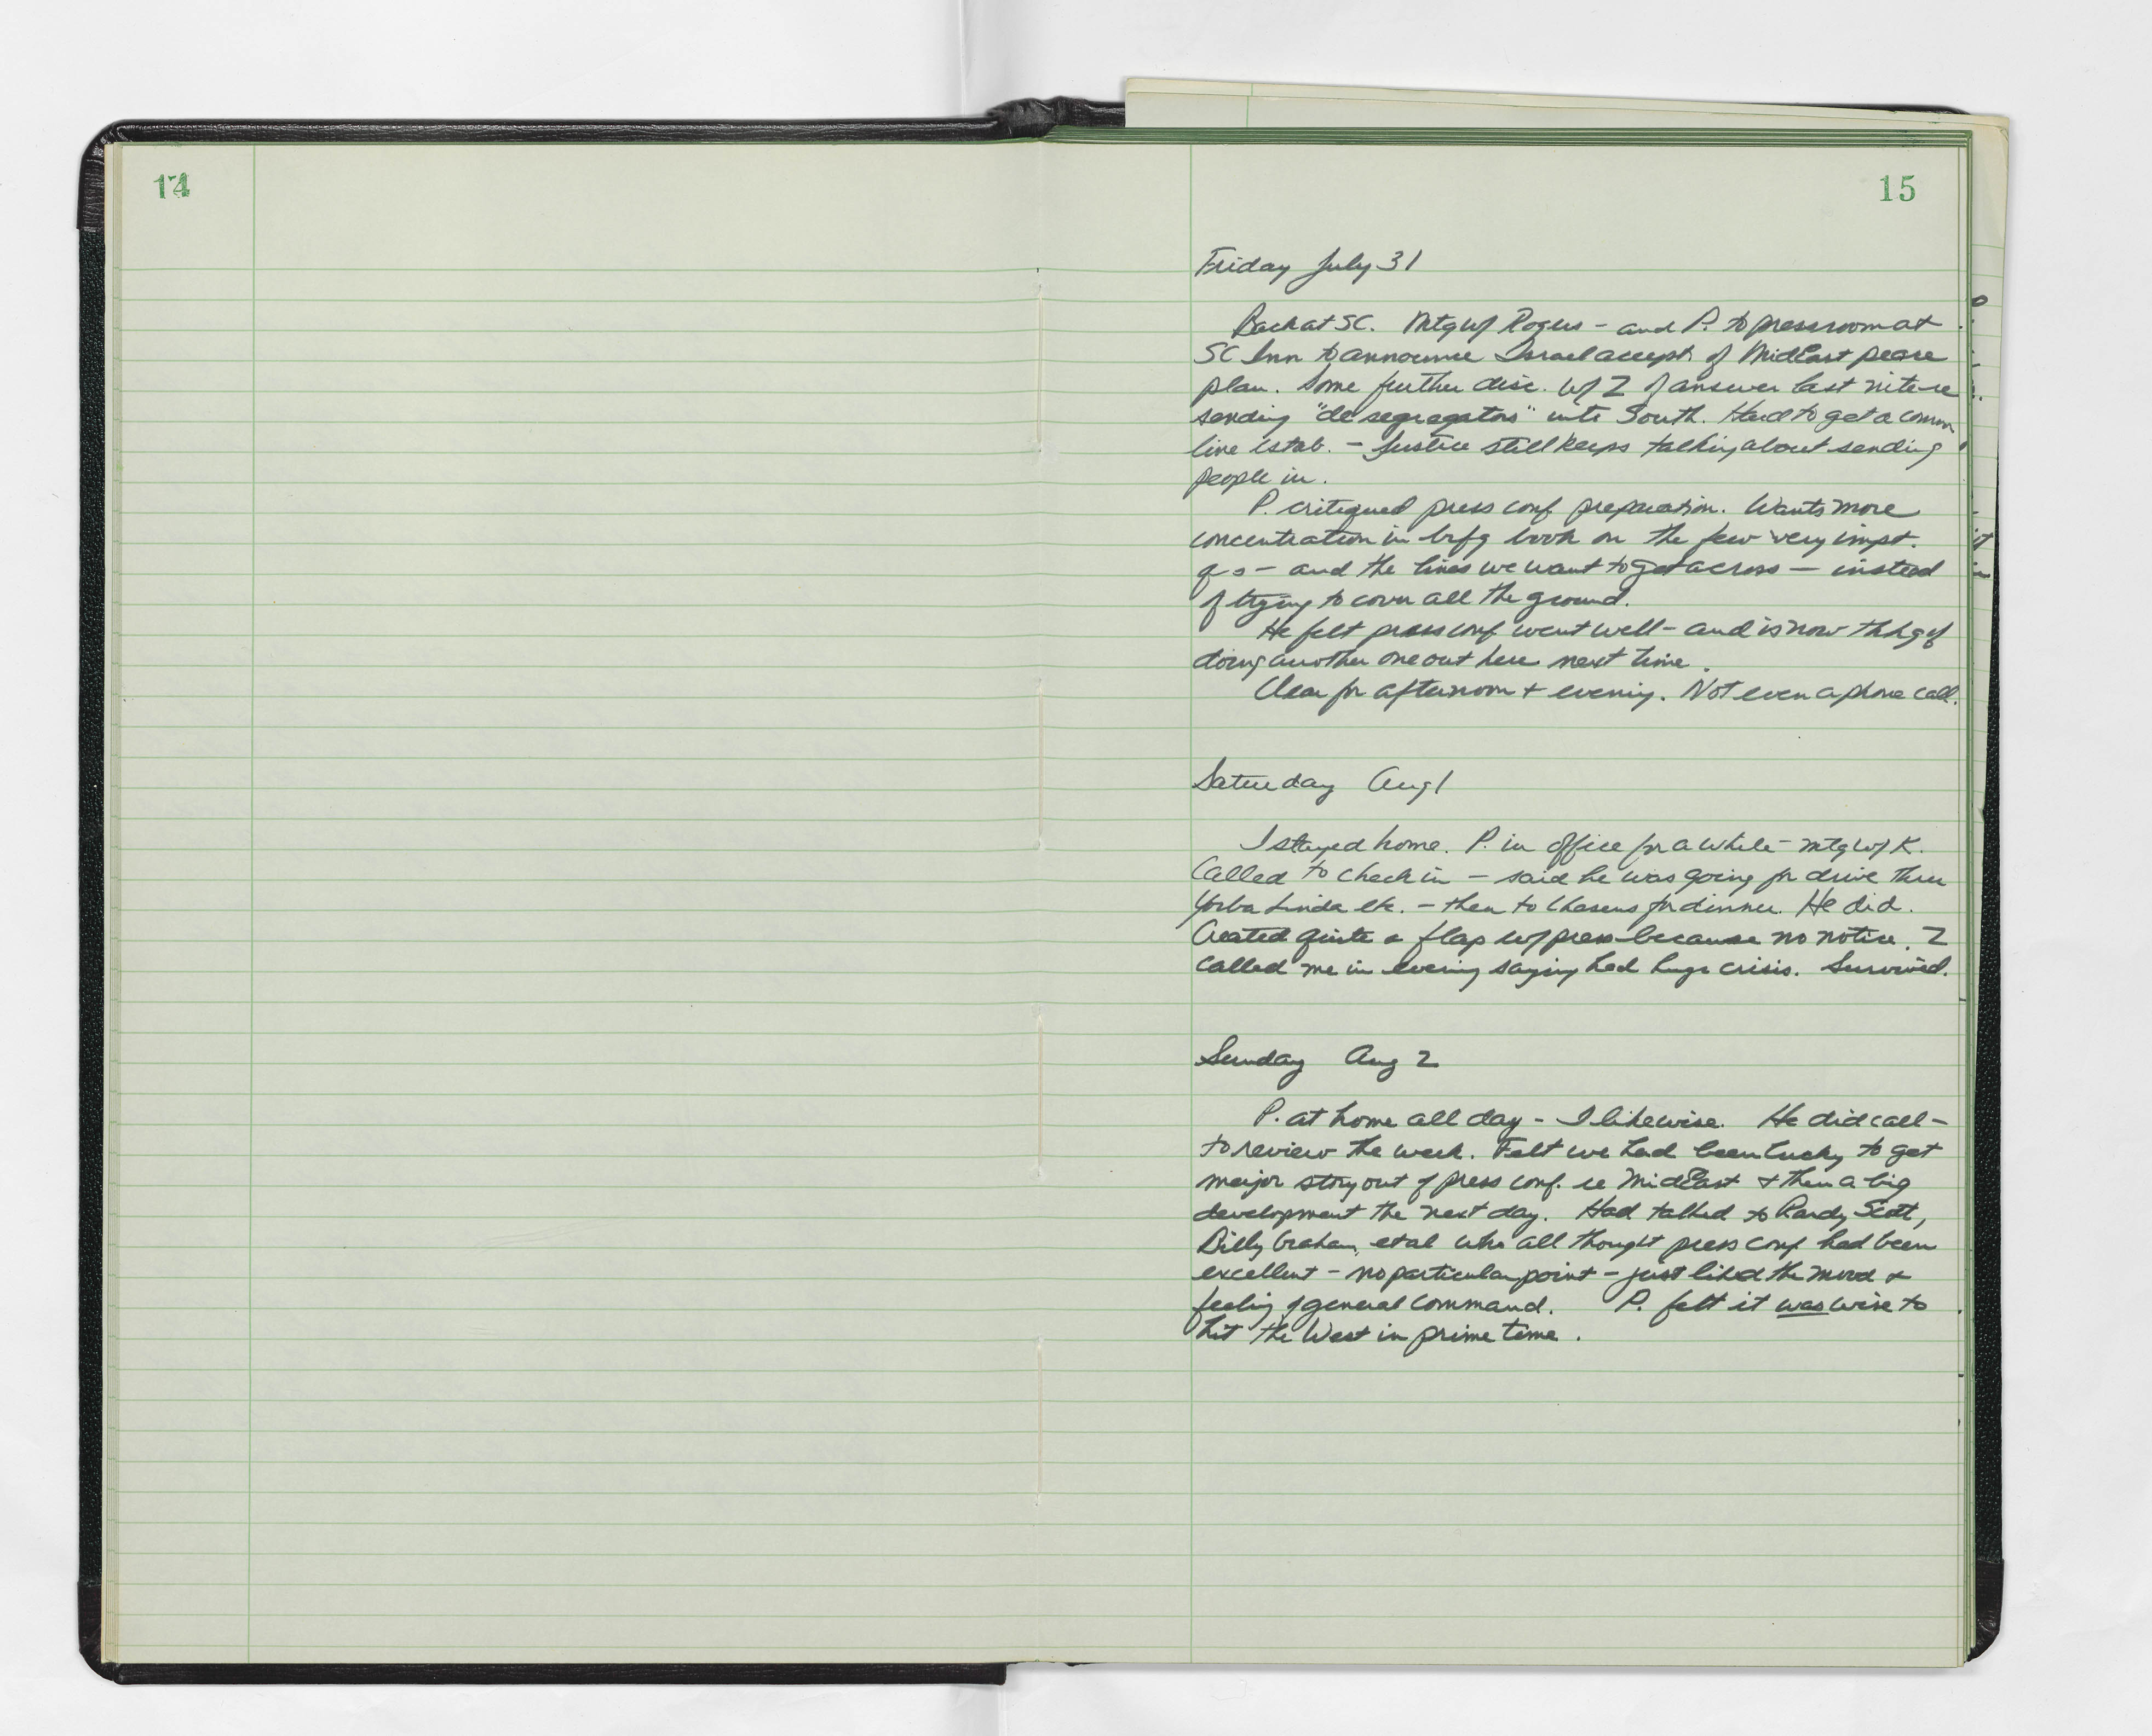 14
15
Friday July 31
Back at SC. Mtg w/ Rogers - and P. to pressroom at
SC Inn to announce Israel accept. of MidEast peace
plan. Some further disc. w/ Z of answer last nite re
sending "desegregators" into South. Hard to get a comm
line estab. - Justice still keeps talking about sending
people in.
P. critiqued press conf preparation. Wants more
concentration in brfg book on the few very impt.
q s - and the lines we want to get across - instead
of trying to cover all the ground.
He felt press conf went well - and is now thkg of
doing another one out here next time.
Clear for afternoon + evening. Not even a phone call.
Saturday Aug 1
I stayed home. P. in office for a while - mtg w/ K.
Called to check in - said he was going for drive thru
Yorba Linda etc. - then to Chasens for dinner. He did.
Created quite a flap w/ press because no notice. Z
called me in evening saying had huge crisis. Survived.
Sunday Aug 2
P. at home all day - I likewise. He did call -
to review the week. Felt we had been lucky to get
major story out of press conf. re MidEast + then a big
development the next day. Had talked to Scott,
Billy Graham, et al who all thought press conf had been
excellent - no particular point - just liked the mood +
feeling of general command. P. felt it was wise to
hit the West in prime time.